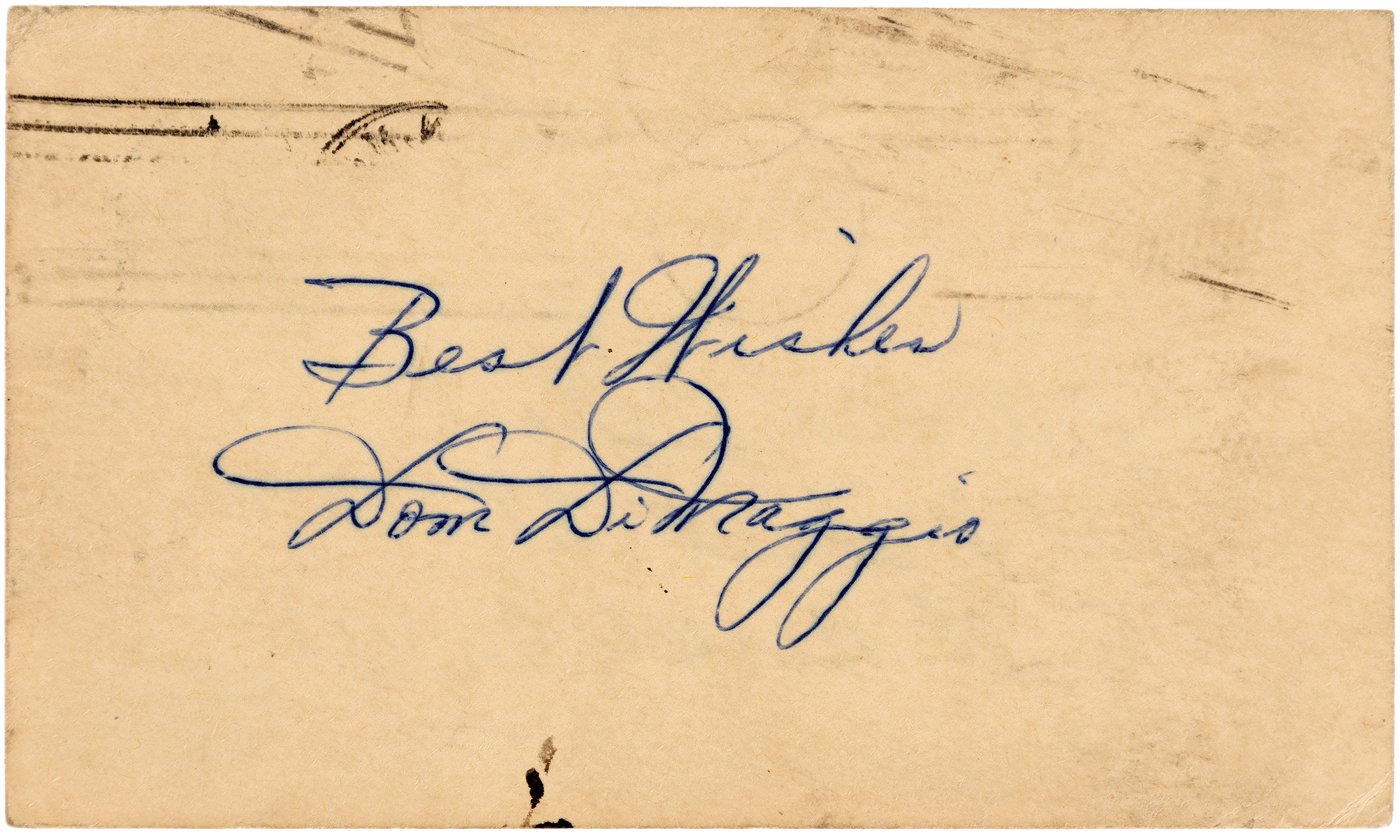 Best Wishes
Dom DiMaggio